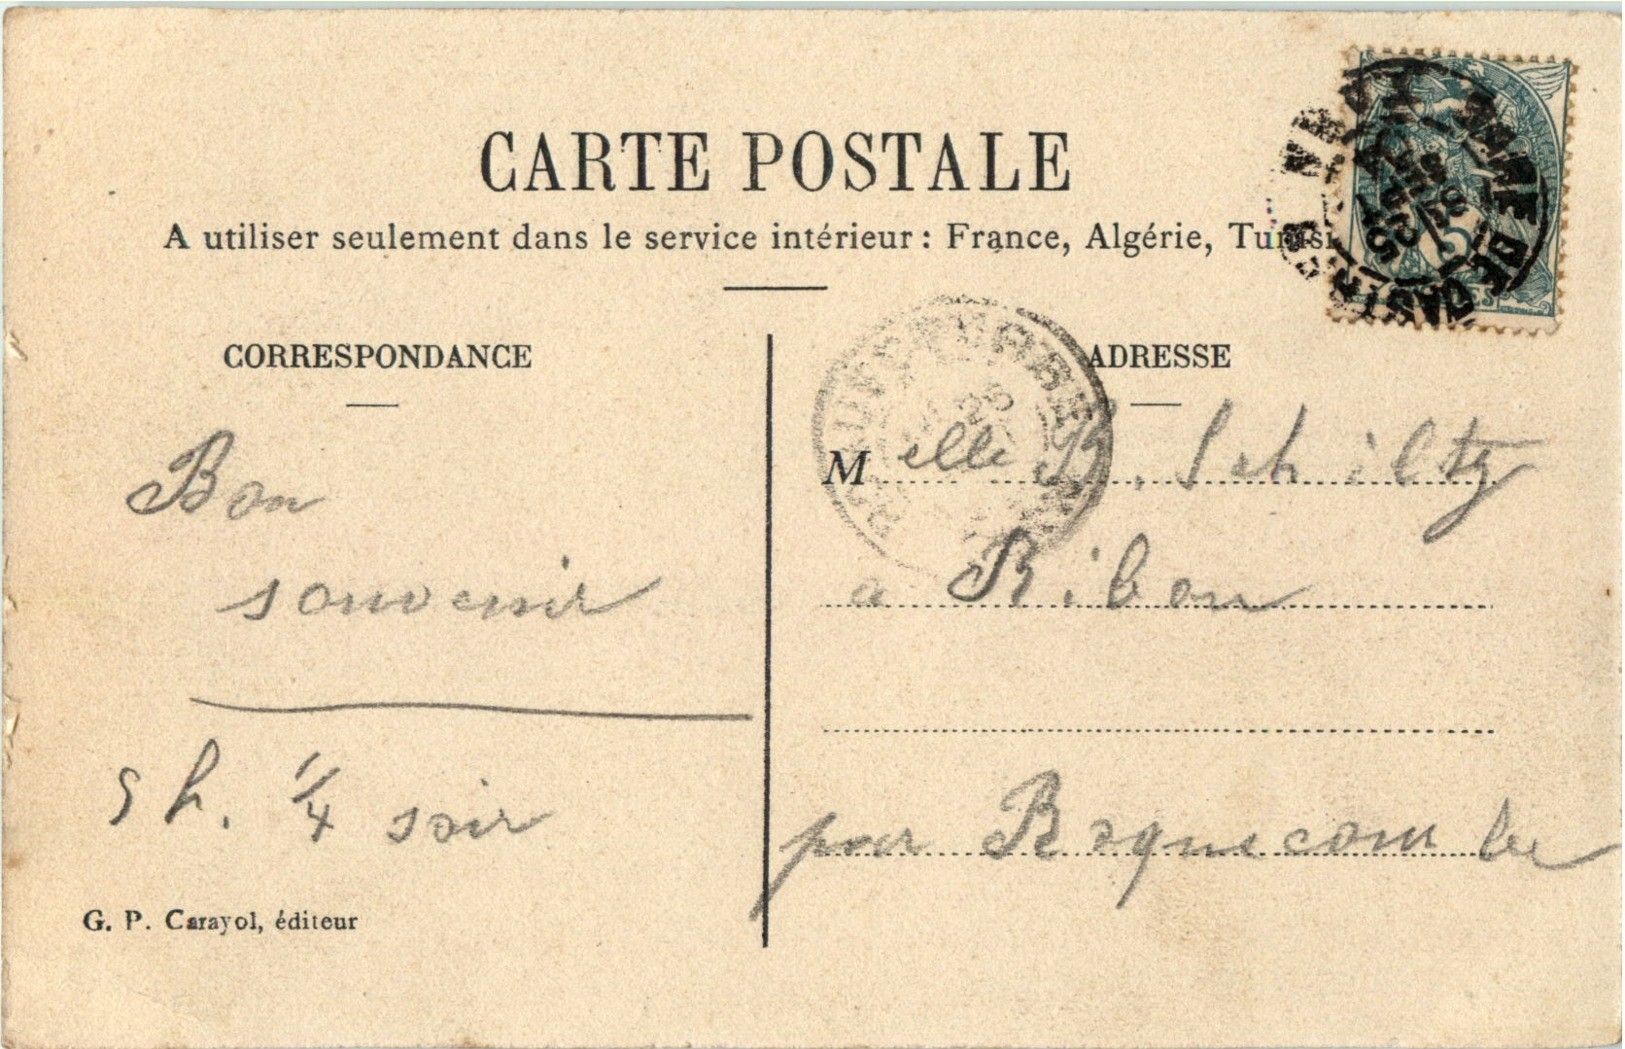 CARTE POSTALE
A utiliser seulement dans le service intérieur : France, Algérie,
CORRESPONDANCE
Bon
souvenir
5 h. 1/4 soir
G. P. Carayol, éditeur
ADRESSE
Melle B. Schiltz
a Ribou
par Roquecourbe
GARE DE CASTRES